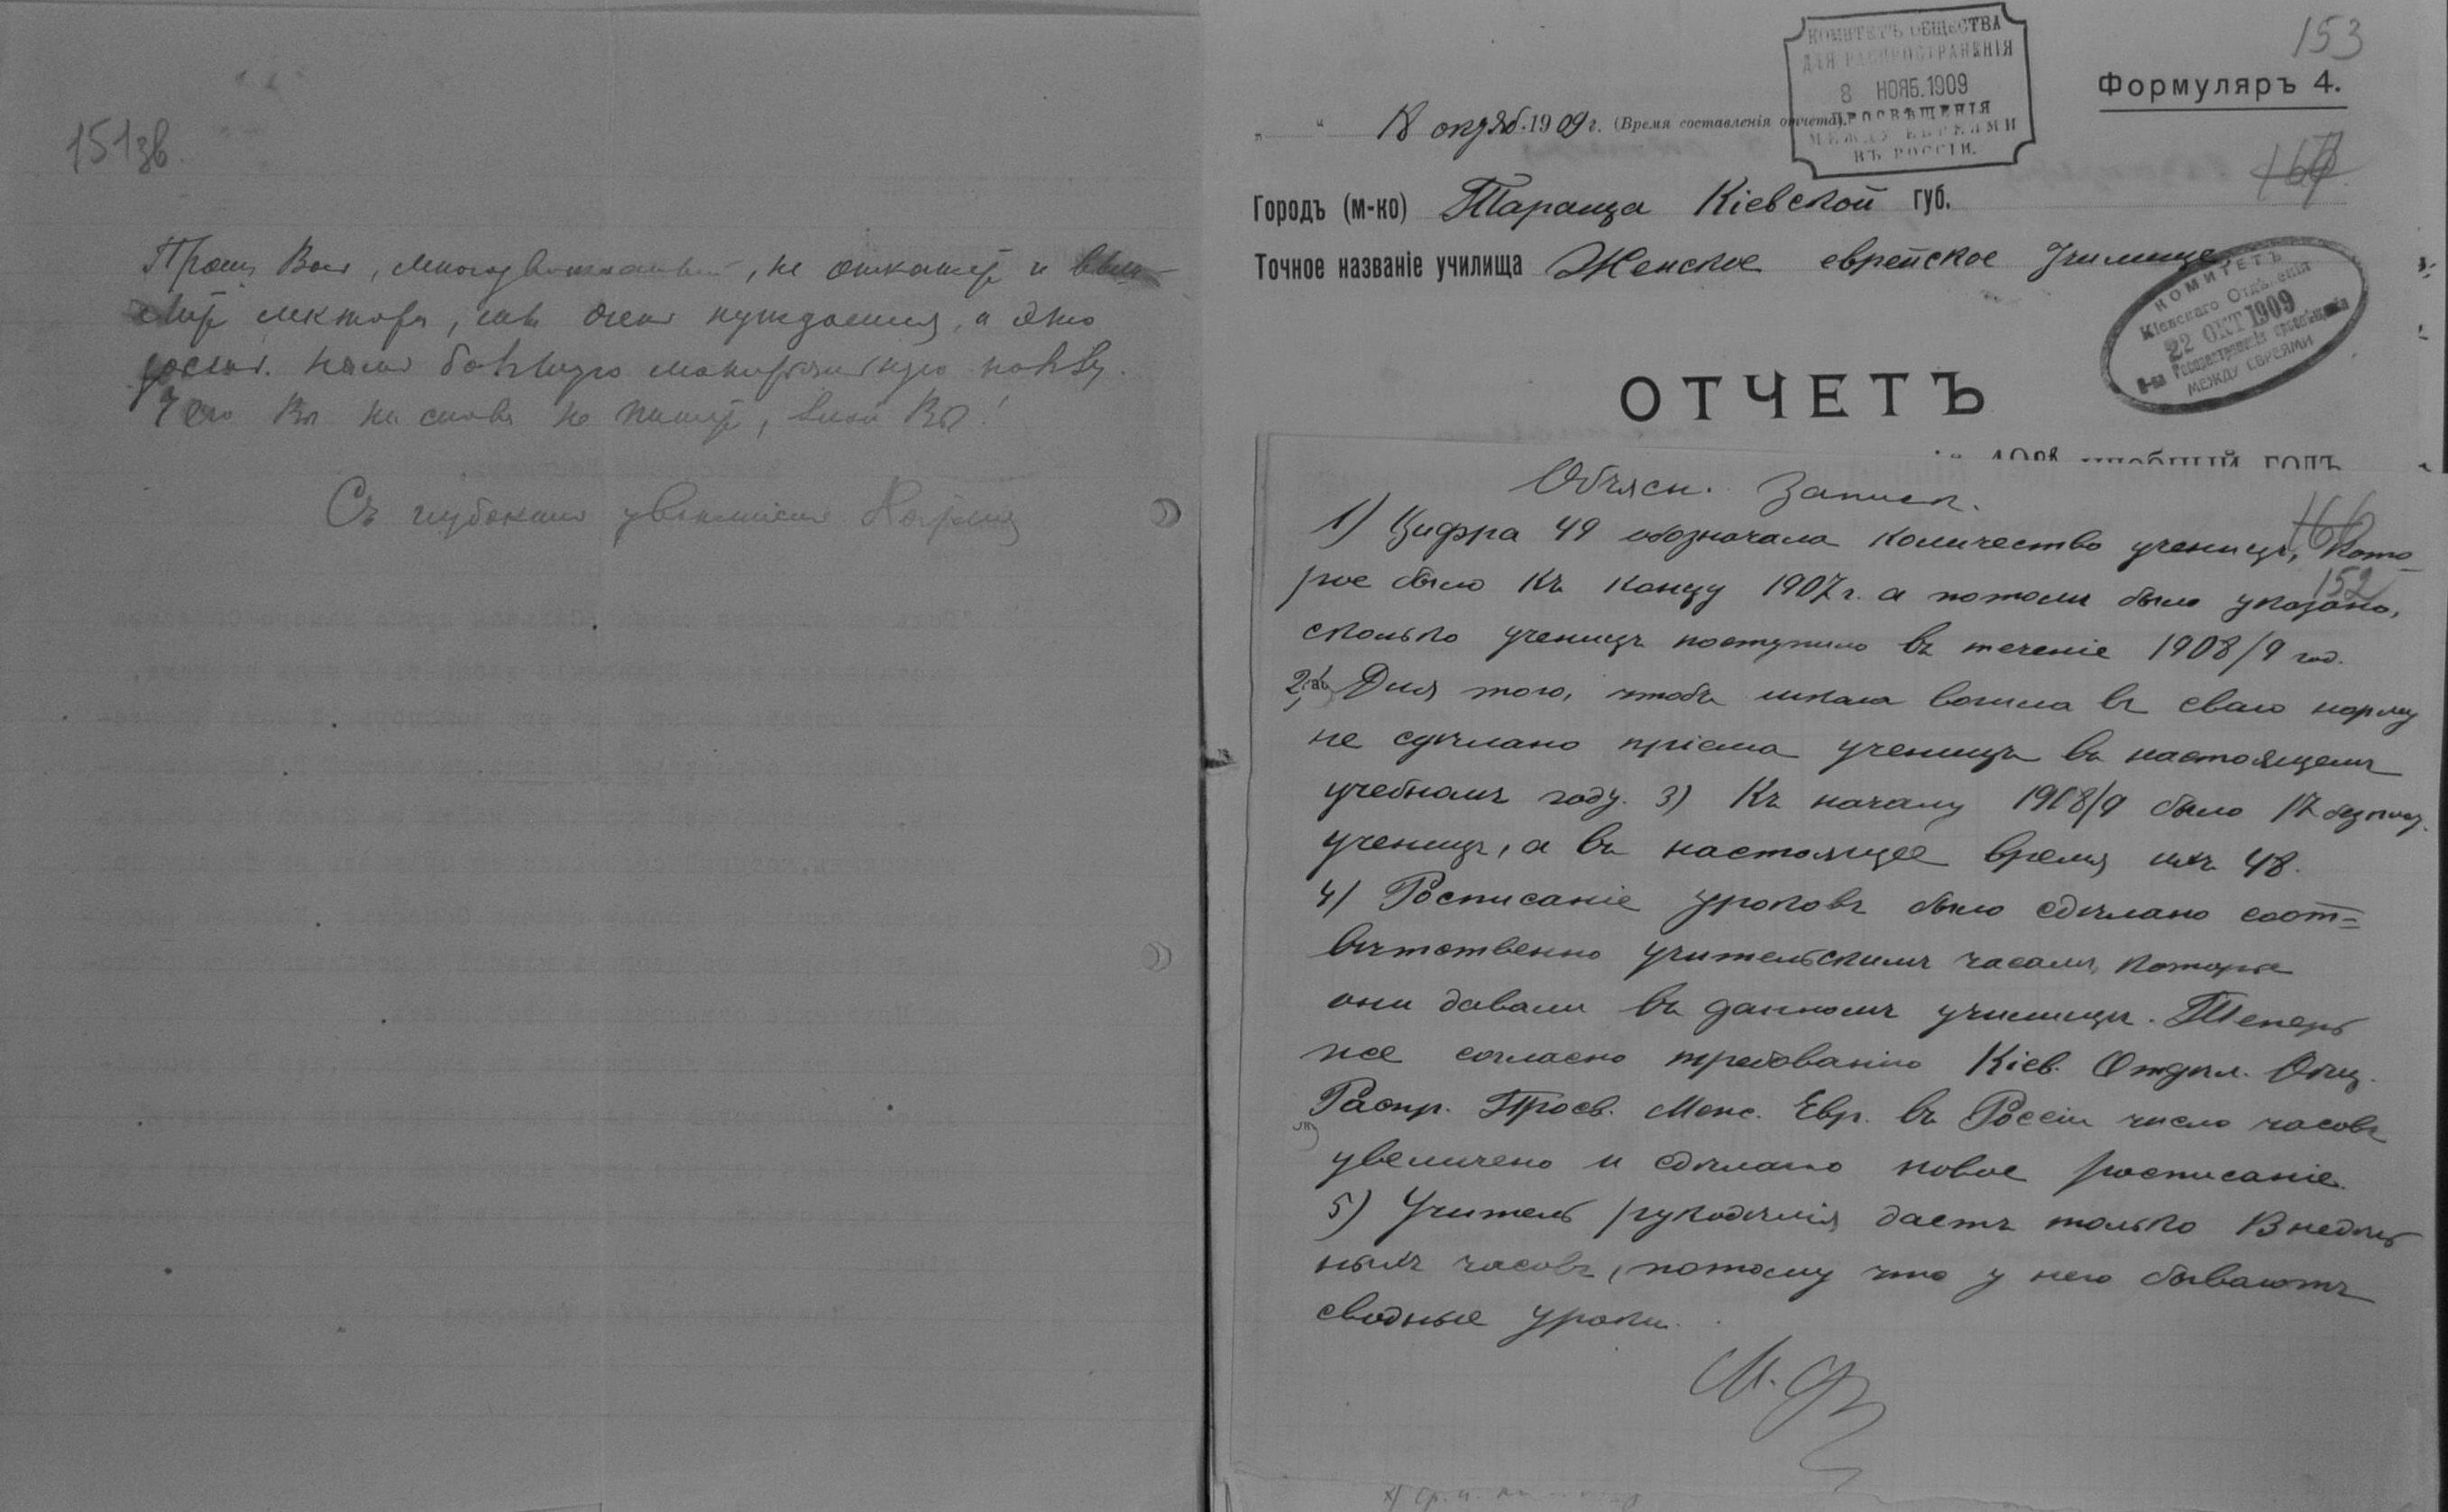 151зв
Прошу Васъ, многоуважаемый, не откажите и
лектора, мы очень нуждаемся, а это
доставит. намъ большую матеріальную
Вы ни слова не пишете,
Съ глубокимъ уваженіемъ
153
Формуляръ 4.
КОМИТЕТЪ ОБЩЕСТВА
ДЛЯ РАСПРОСТРАНЕНІЯ
8 НОЯБ.1909
ПРОСВѢЩЕНІЯ
МЕЖДУ ЕВРЕЯМИ
ВЪ РОССІИ.
„ “ 18 октяб. 1909 г. (Время составленія отчета).
Городъ (м-ко) Тараща Кіевской губ.
Точное названіе училища Женское еврейское Училище
КОМИТЕТЪ
Кіевскаго Отдѣленія
22 ОКТ 1909
О-ва Распространенія просвѣщенія
МЕЖДУ ЕВРЕЯМИ
ОТЧЕТЪ
учебный годъ
Объясн. Записк.
166
1) Цифра 49 обозначала количество ученицъ, кото-
рое было къ концу 1907 г. а потомъ было указано,
152
сколько ученицъ поступило въ теченіе 1908/9 год.
2) Для того, чтобъ школа вошла въ свою норму
не сдѣлано пріема ученицъ въ настоящемъ
учебномъ году. 3) Къ началу 1908/9 было 17 безплат.
ученицъ, а въ настоящее время ихъ 48.
4) Росписаніе уроковъ было сдѣлано соот=
вѣтственно учительскимъ часамъ, которые
они давали въ данномъ училищѣ. Теперь
же согласно требованію Кіев. Отдѣл. Общ.
Распр. Просв. Меж. Евр. въ Россіи число часовъ
увеличено и сдѣлано новое росписаніе.
5) Учитель рукодѣлія даетъ только 13 недѣль
ныхъ часовъ, потому что у него бываютъ
сводные уроки.